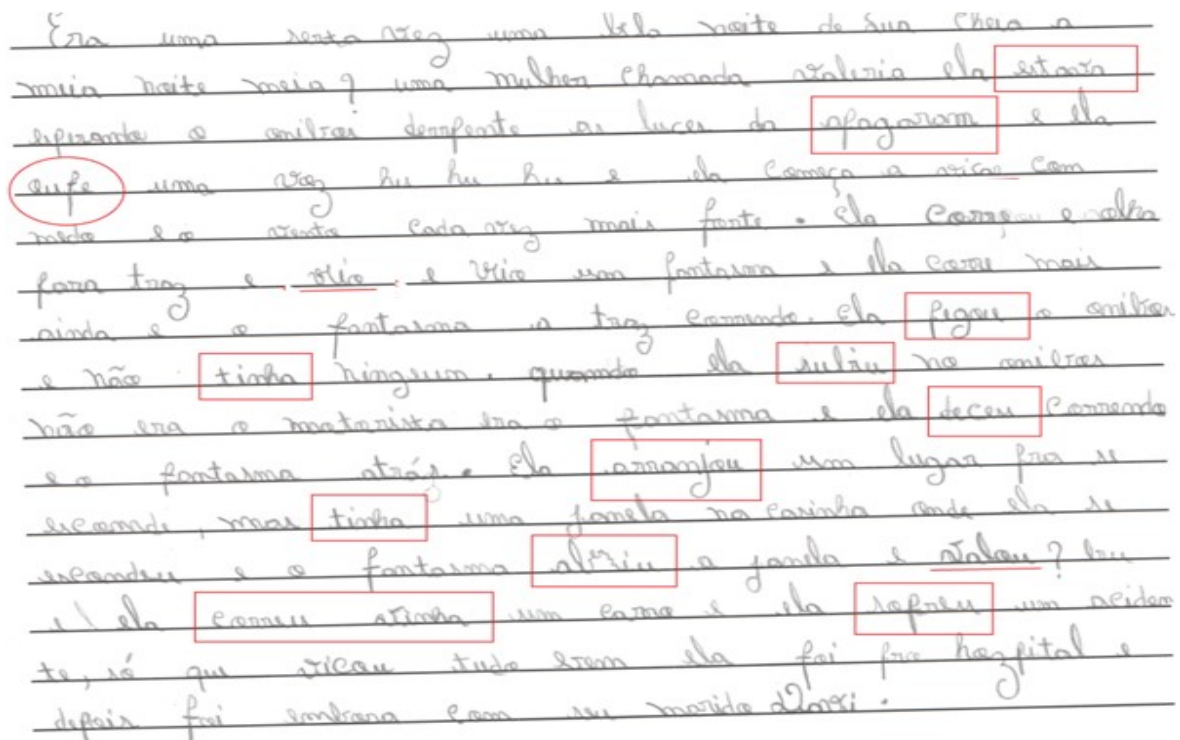 Era uma serta vez uma bela noite de Lua cheia a
meia noite meia? uma mulher chamada valeria ela estava
esperando o onibos derrpente as luces da apagaram e ela
oufe uma voz hu hu hu e ela começa a vicar com
medo e o vento cada vez mais forte. Ela correu e olha
para traz e vio e vio um fantasma e ela corre mais
ainda e o fantasma a traz correndo. Ela pegou o onibos
e não tinha ningum. quando ela subiu no onibos
não era o motorista era o fantasma e ela deceu correndo
e o fantasma atrás. Ela arranjou um lugar pra se
esconde, mas tinha uma janela na casinha onde ela se
escondeu e o fantasma abriu a janela e valou? bu
e ela correu vinha um carro e ela sofreu um aciden
te, só que vicou tudo bem ela foi pro hospital e
depois foi embora com seu marido